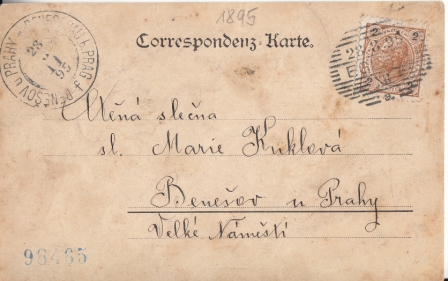 1895
Correspondenz-Karte.
BENEŠOV U PRAHY
Učná slečna
sl. Marie Kuklová
Benešov u Prahy
Velké Náměstí
98465